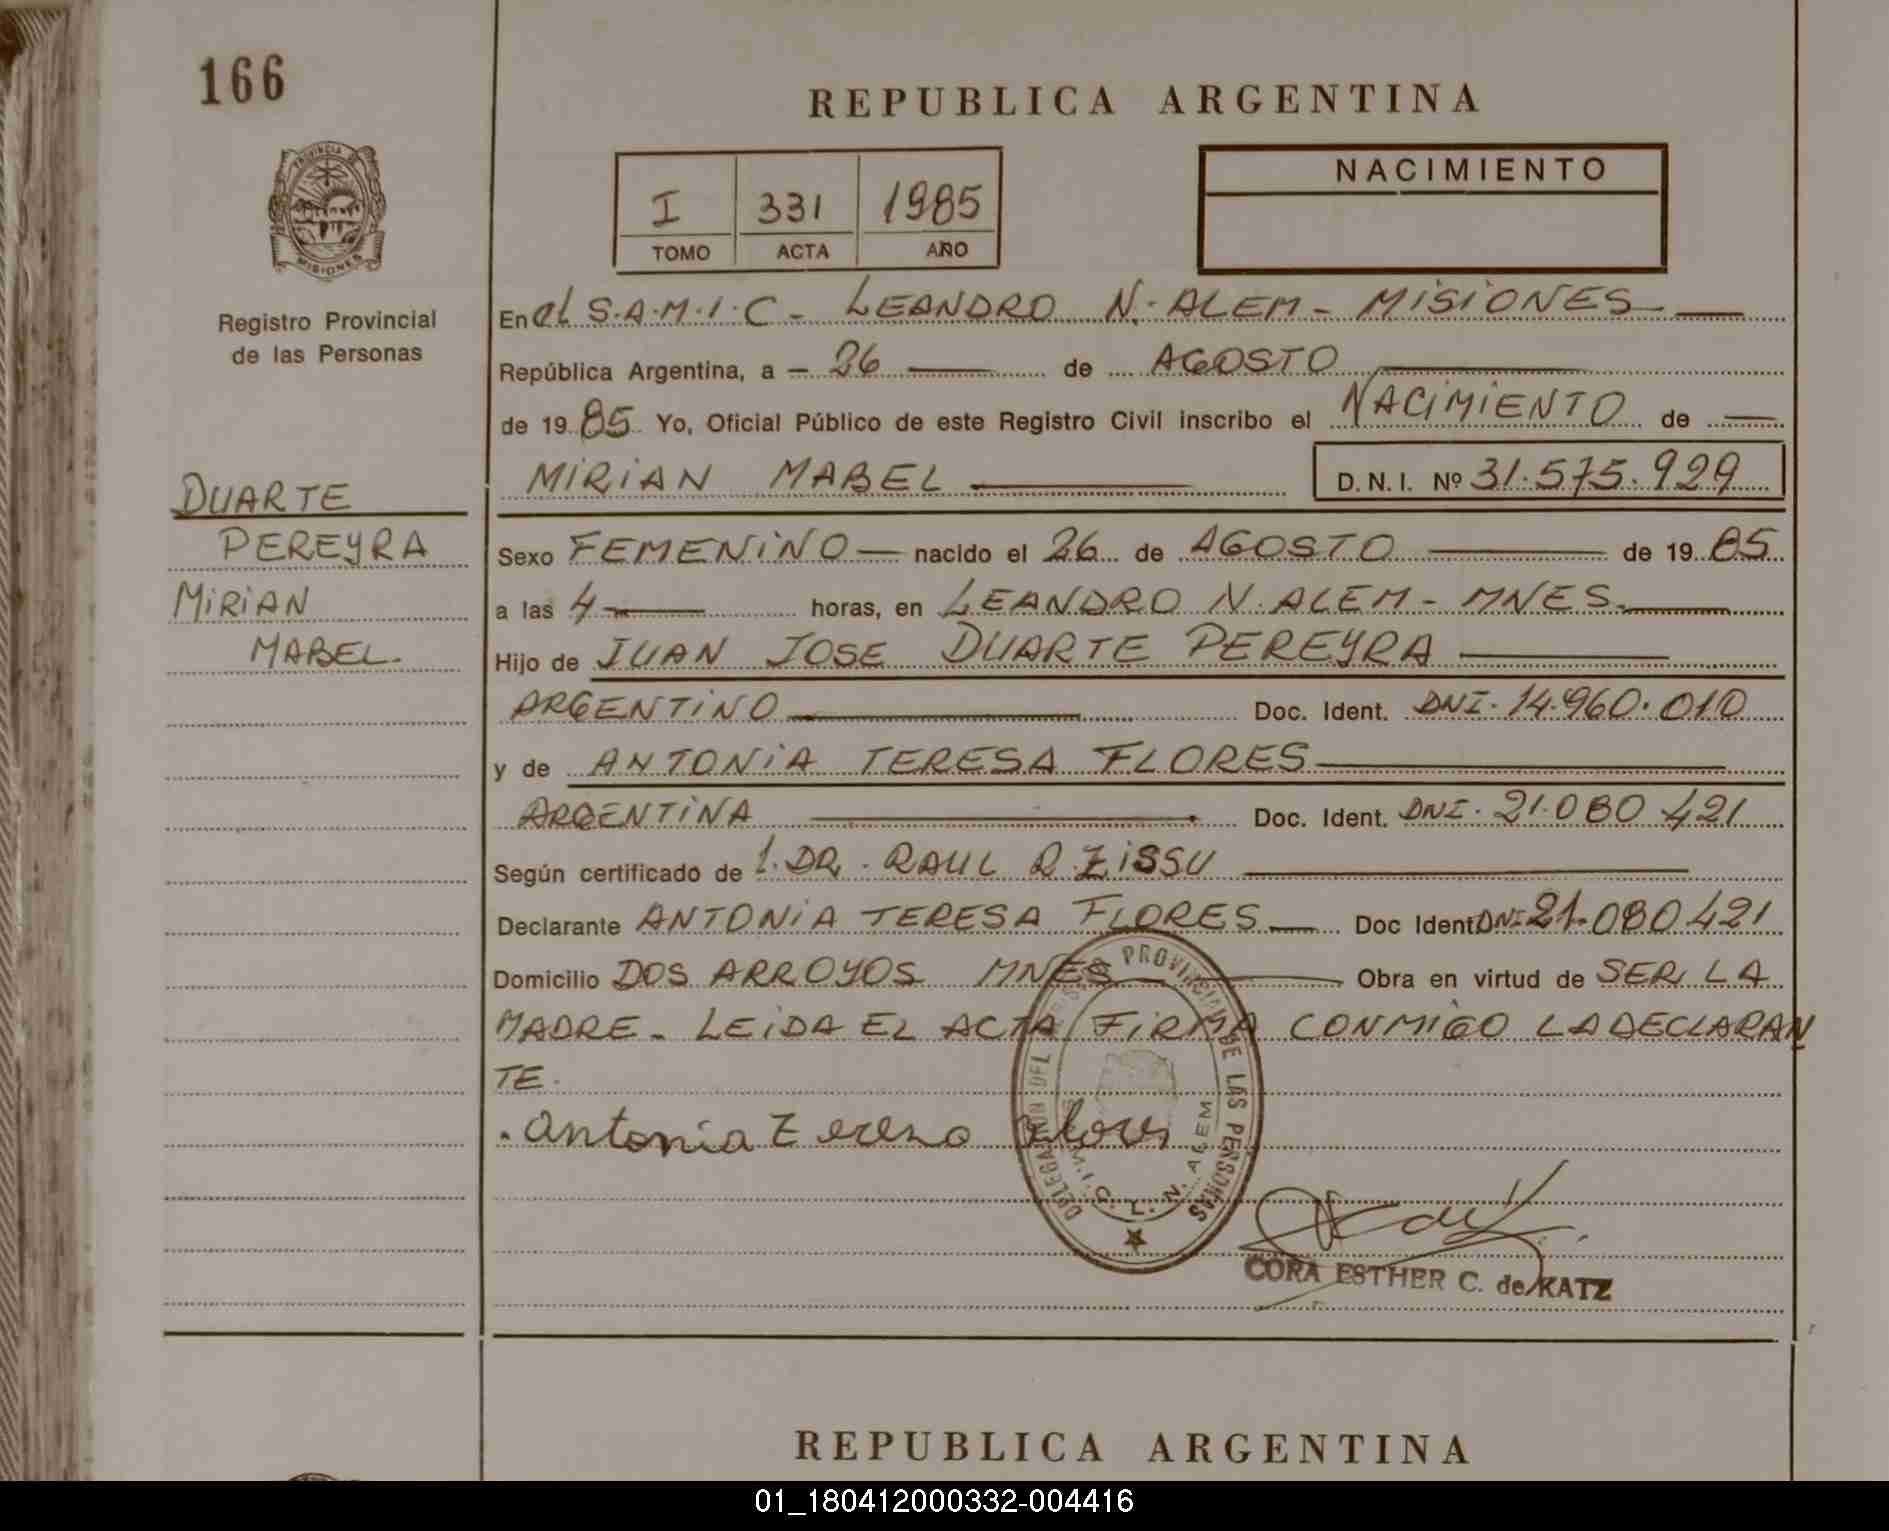 166
REPUBLICA ARGENTINA
PROVINCIA DE
MISIONES
Registro Provincial
de las Personas
I 331 1985
TOMO ACTA AÑO
NACIMIENTO
En el S.A.M.I.C - LEANDRO N. ALEM - MISIONES
República Argentina, a - 26 de AGOSTO
de 1985 Yo, Oficial Público de este Registro Civil inscribo el NACIMIENTO de
MIRIAN MABEL D.N.I. Nº 31.575.929
DUARTE
PEREYRA
MIRIAN
MABEL.
Sexo FEMENINO - nacido el 26 de AGOSTO de 1985
a las 4 horas, en LEANDRO N. ALEM - MNES.
Hijo de JUAN JOSE DUARTE PEREYRA
ARGENTINO Doc. Ident. DNI. 14.960.010
y de ANTONIA TERESA FLORES
ARGENTINA Doc. Ident. DNI. 21.080 421
Según certificado de 1. DR. RAUL R. ZISSU
Declarante ANTONIA TERESA FLORES Doc Ident DNI 21.080 421
Domicilio DOS ARROYOS MNES Obra en virtud de SER LA
MADRE - LEIDA EL ACTA FIRMA CONMIGO LA DECLARAN
TE.
Antonia Tereza Flores
DELEGACION DEL REGISTRO PROVINCIAL DE LAS PERSONAS
L. N. ALEM
CORA ESTHER C. de KATZ
REPUBLICA ARGENTINA
01_180412000332-004416